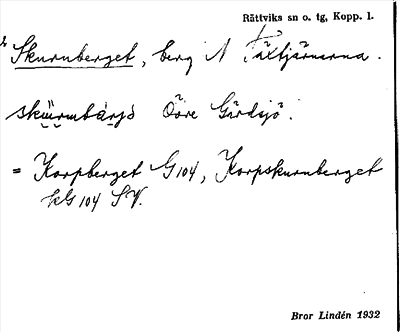 Rättviks sn o. tg, Kopp. l.
Skurnberget, berg N Täxtjärnarna.
Övre Gärdsjö.
= Korpberget G 104, Korpskurnberget
kG 104 SV.
Bror Lindén 1932